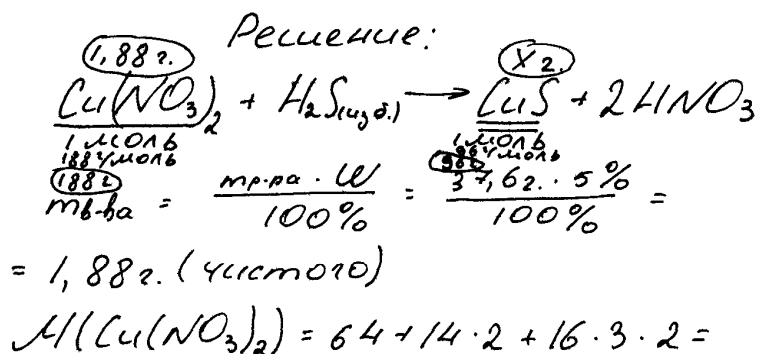 Решение:
1,88 г. X г.
Cu(NO₃)₂ + H₂S(изб.) → CuS + 2HNO₃
1 моль 1 моль
188 г/моль 96 г/моль
188 г 96 г
mв-ва = mр-ра · W / 100% = 37,6 г. · 5% / 100% =
= 1,88 г. (чистого)
M(Cu(NO₃)₂) = 64 + 14 · 2 + 16 · 3 · 2 =